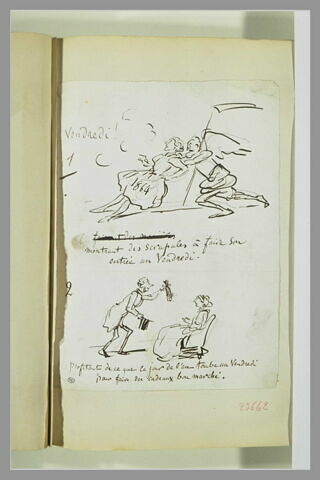 Vendredi !
1
1864
montrant des scrupules à faire son
entrée un Vendredi.
2
profitant de ce que le jour de l'an tombe un Vendredi
pour faire des cadeaux bon marché.
23662